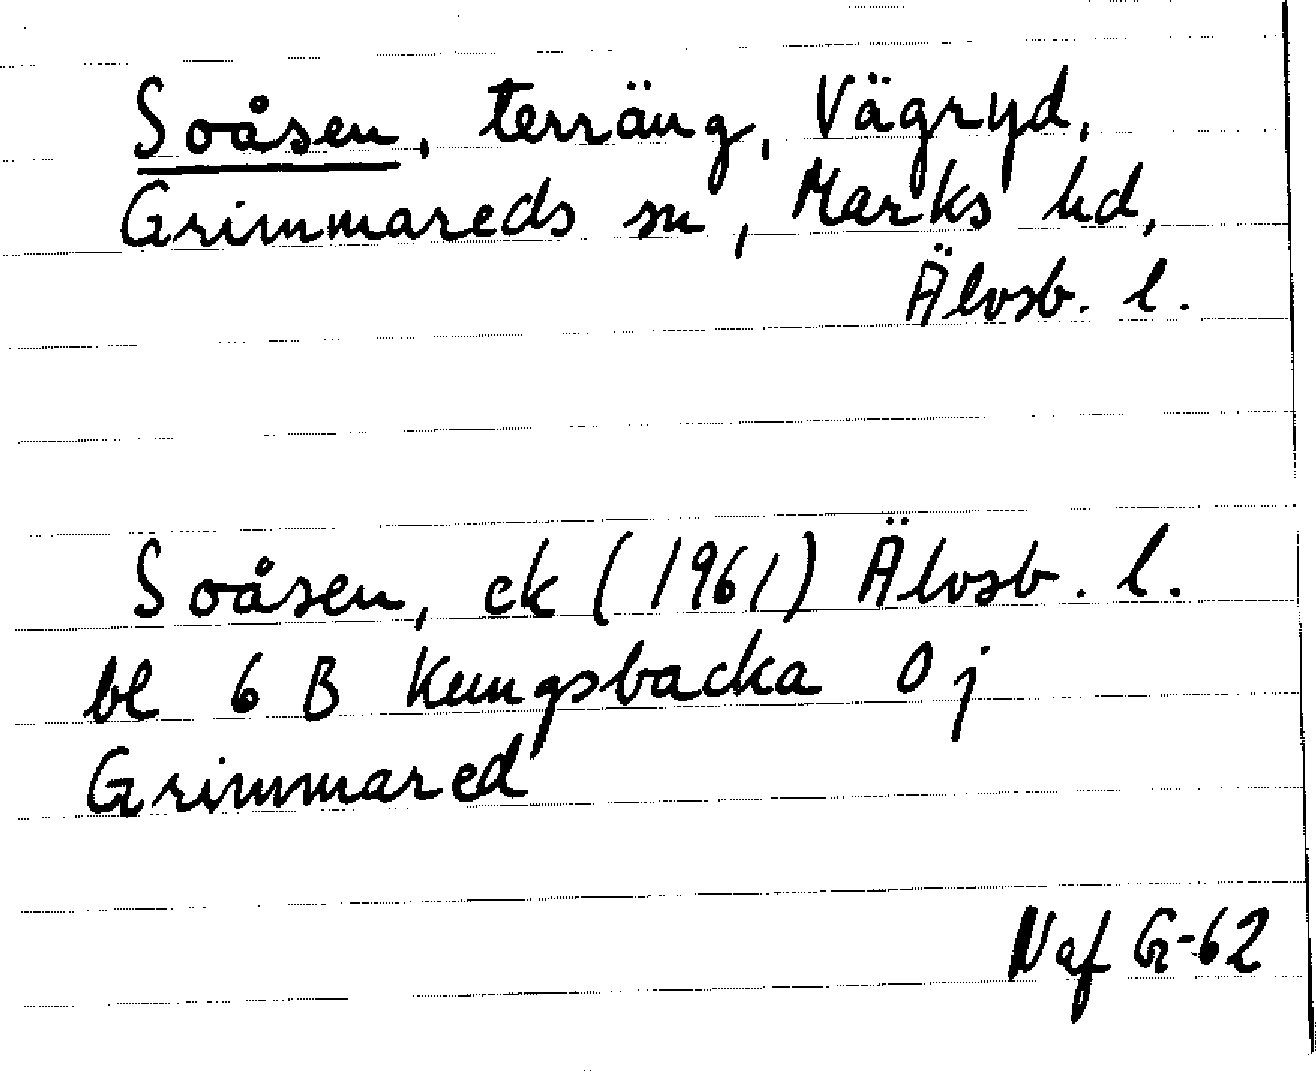 Soåsen, terräng, Vägryd,
Grimmareds sn, Marks hd,
Älvsb. l.
Soåsen, ek (1961) Älvsb. l.
bl 6 B Kungsbacka 0 j
Grimmared
Naf G-62